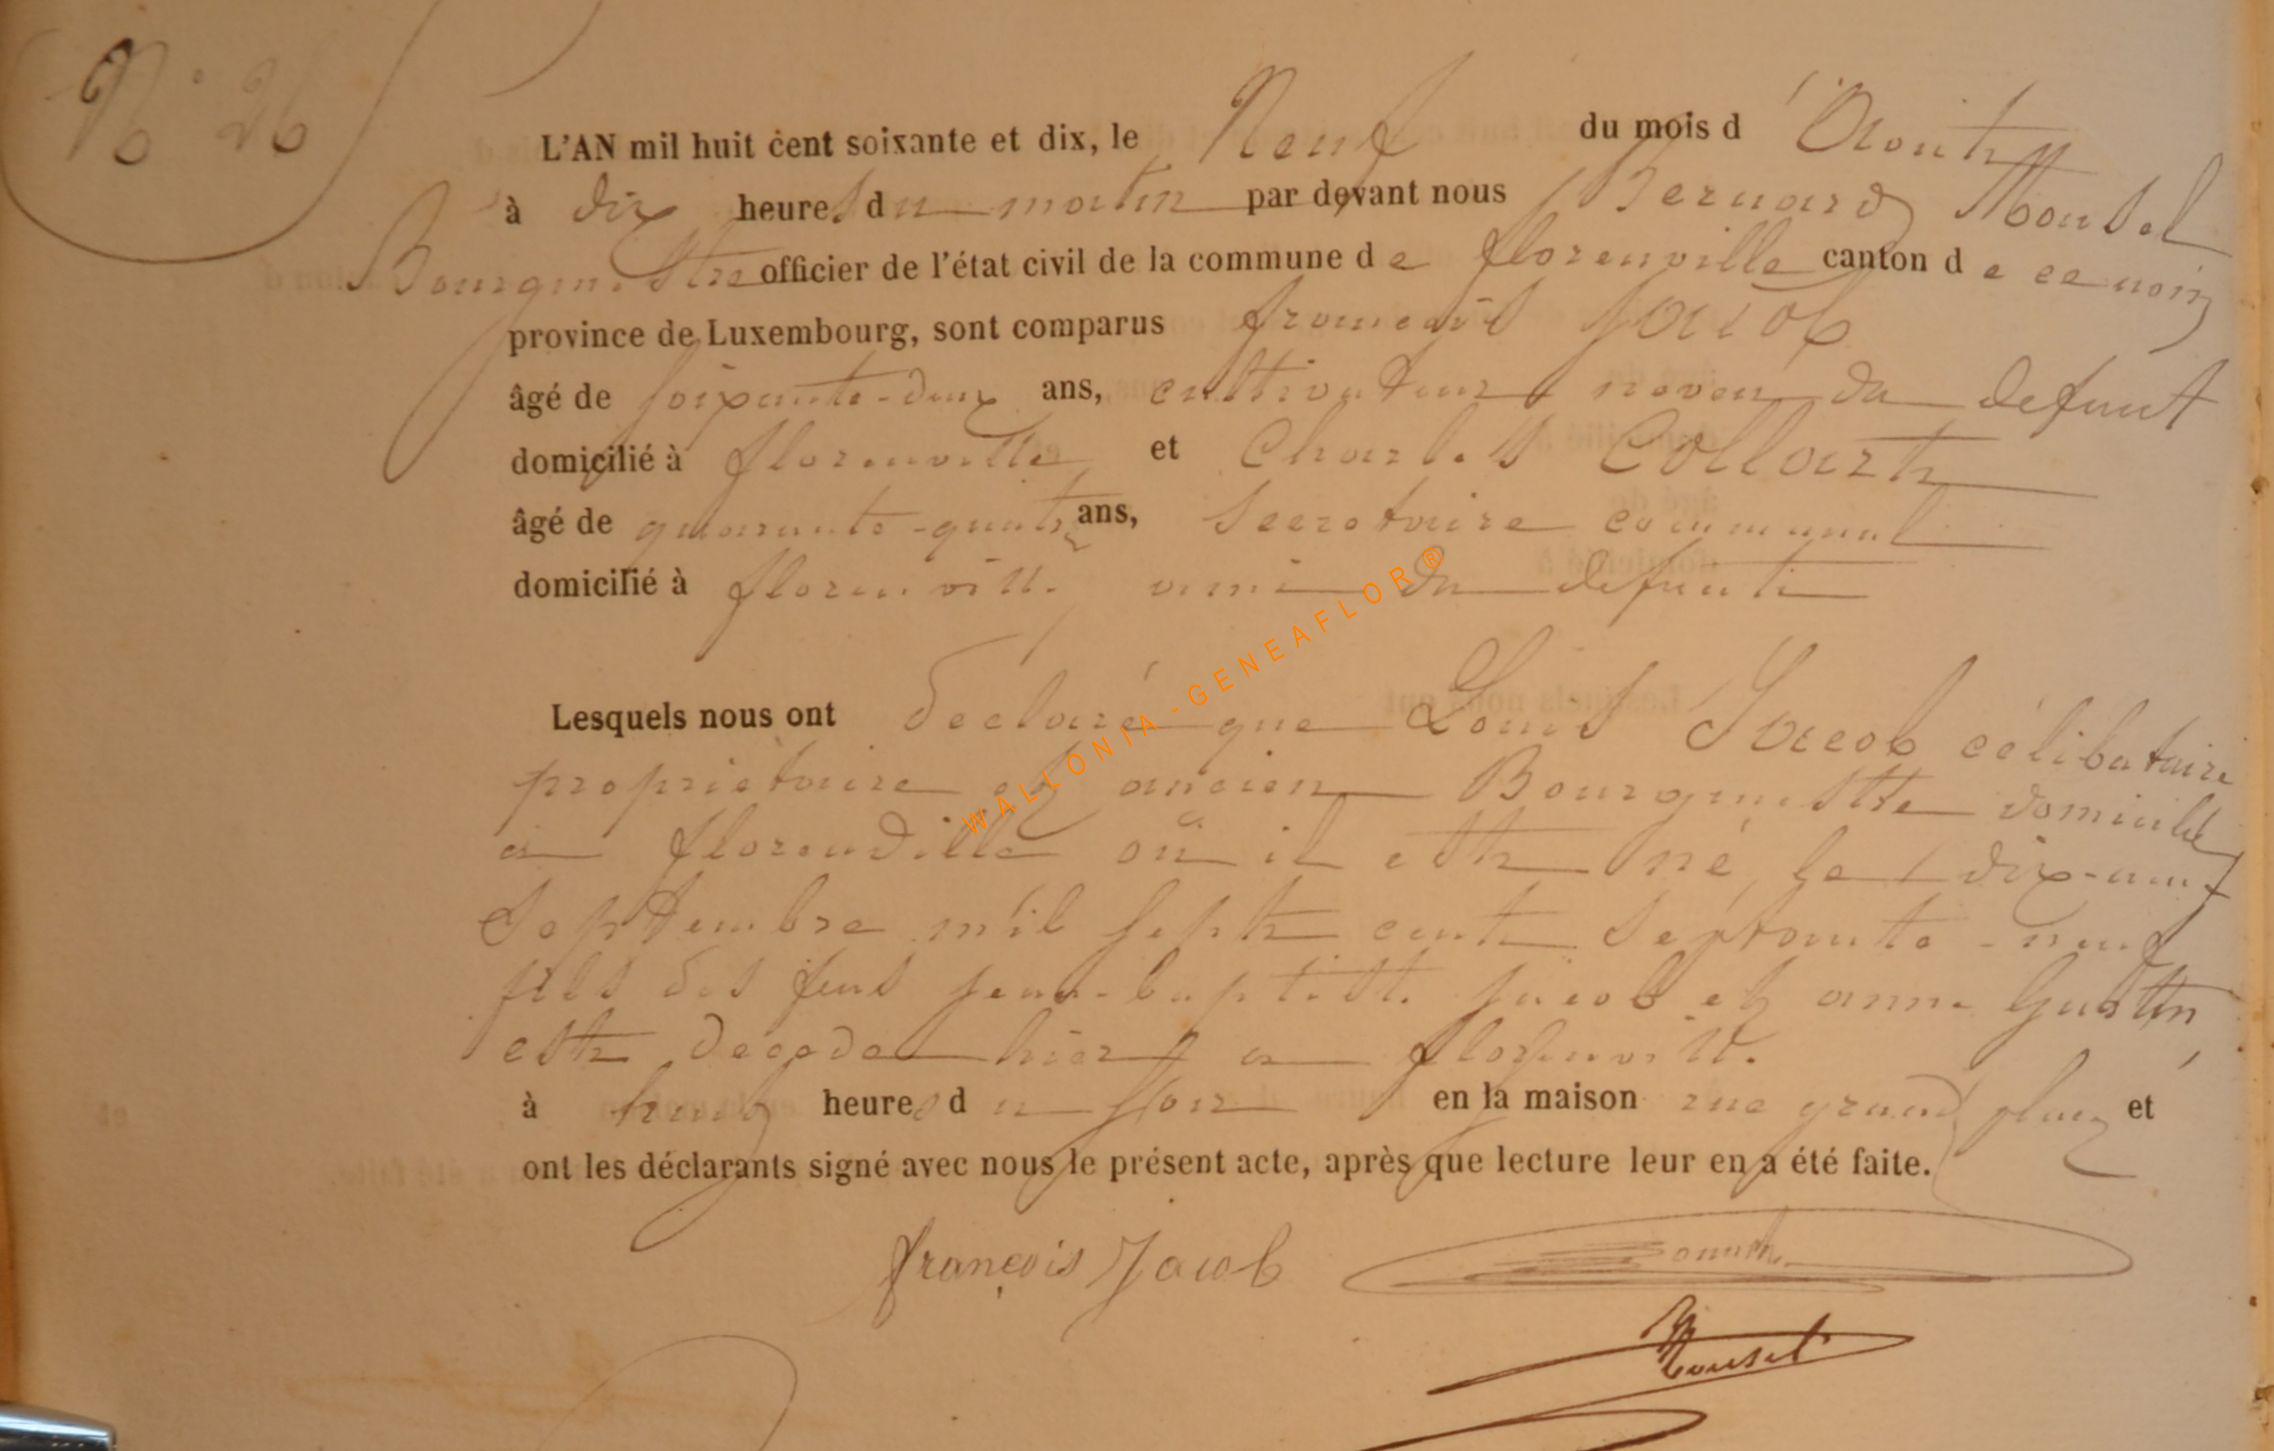 N° 26
L'AN mil huit cent soixante et dix, le Neuf du mois d'Aout
à dix heures du matin par devant nous Bernard Mousel
Bourgmestre officier de l'état civil de la commune de florenville canton de ce nom
province de Luxembourg, sont comparus françois Jacob
âgé de soixante-deux ans, cultivateur neveu du defunt
domicilié à florenville et Charles Collart
âgé de quarante-quatre ans, Secretaire communal
domicilié à florenville ami du defunt
Lesquels nous ont déclaré que Louis Jacob célibataire
propriétaire et ancien Bourgmestre domicilié
a florenville où il est né le dix-neuf
Septembre mil sept cent septante-neuf
fils des feus jean-baptiste jacob et anne Gustin,
est décédé hier a florenville
à huit heures du soir en la maison rue grand place et
ont les déclarants signé avec nous le présent acte, après que lecture leur en a été faite.
françois Jacob
Mousel
WALLONIA-GENEAFLOR®